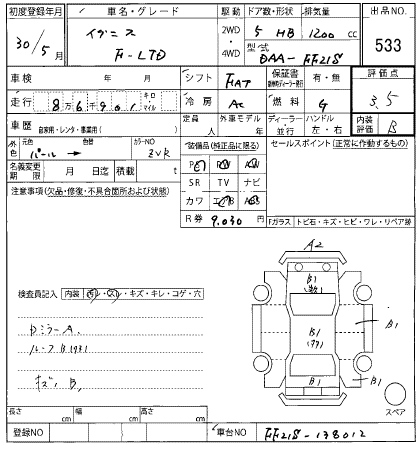 初度登録年月 車名・グレード 駆動 ドア数・形状 排気量 出品NO.
30/5月 イグニス F-LTD 2WD・4WD 5 HB 1200cc 533
型式 DAA-FF21S
車検 年 月 シフト FAT 保証書 有・無 評価点
走行 8万6千901 キロ マイル 冷房 AC 燃料 G 3.5
車歴 自家用・レンタ・事業用( ) 定員 人 外車モデル 年 ディーラー・並行 ハンドル 左・右 内装評価 B
外色 元色 パール → 色替 カラーNO ZVR
装備品(純正品に限る) セールスポイント(正常に作動するもの)
名義変更期限 月 日迄 積載 t
SR TV ナビ
注意事項(欠品・修復・不具合箇所および状態)
カワ
R券 9.030円
Fガラス トビ石・キズ・ヒビ・ワレ・リペア跡
A2
検査員記入 内装 汚レ・スレ・キズ・キレ・コゲ・穴
B1
B1
B1
ドミラーA.
ルーフB1
キズ、B,
B1
B1
スペア
長さ cm 幅 cm 高さ cm
登録NO 車台NO FF21S-138012